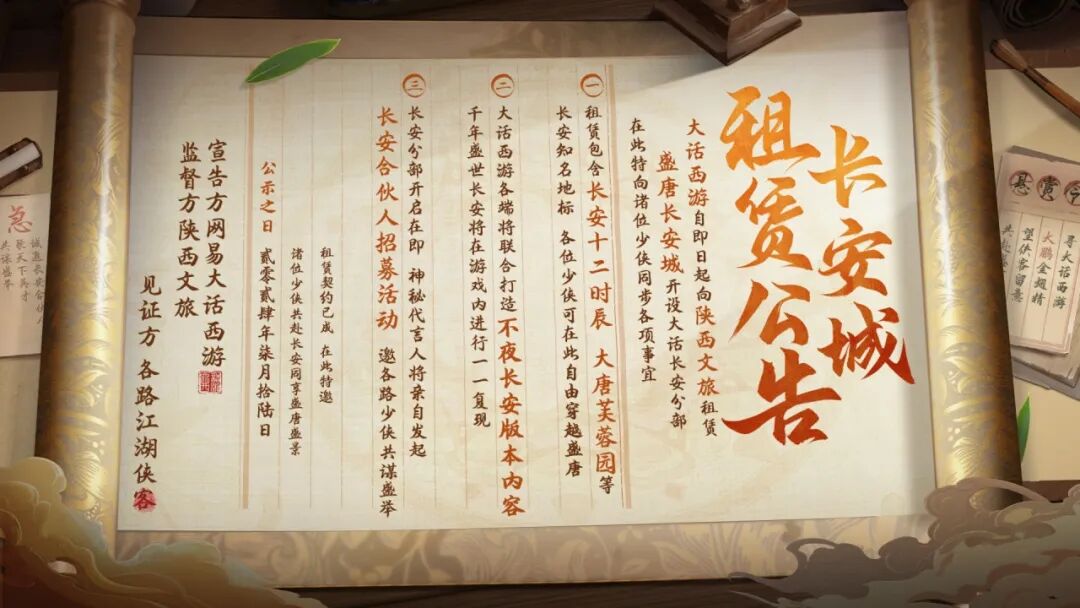 长安城
租赁公告
大话西游自即日起向陕西文旅租赁
盛唐长安城开设大话长安分部
在此特向诸位少侠同步各项事宜
一
租赁包含长安十二时辰 大唐芙蓉园等
长安知名地标 各位少侠可在此自由穿越盛唐
二
大话西游各端将联合打造不夜长安版本内容
千年盛世长安将在游戏内进行一一复现
三
长安分部开启在即 神秘代言人将亲自发起
长安合伙人招募活动 邀各路少侠共谋盛举
租赁契约已成 在此特邀
诸位少侠共赴长安同享盛唐盛景
公示之日 贰零贰肆年柒月拾陆日
宣告方网易大话西游
监督方陕西文旅
见证方 各路江湖侠客
悬赏令
寻大话西游
大鹏金翅精
望侠客留意
急